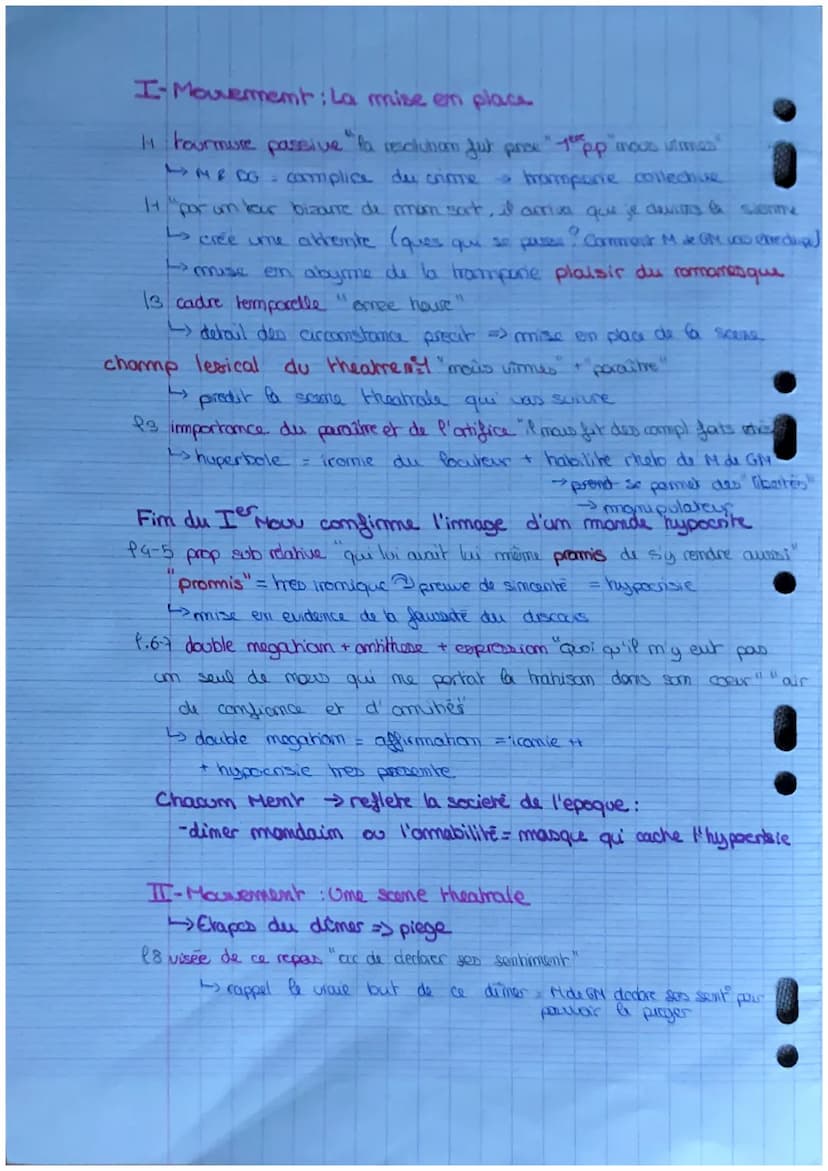 I-Mouvement : La mise en place
l1 tournure passive "la resolution fut prise" 1ere pp "nous vimes"
↳ M & DG = complice du crime → tromperie collective
l1 "par un tour bizarre de mon sort, il arriva que je devins la sienne
↳ crée une attente (ques qui se passe ? Comment M de GM vas etre dupe)
↳ mise en abyme de la tromperie plaisir du romanesque
l3 cadre temporelle "onze heure"
↳ detail des circonstance precit => mise en place de la scene
champ lexical du theatre "nous vimes" + "paraitre"
↳ predit la scene theatrale qui vas suivre
l3 importance du paraitre et de l'artifice "il nous fit des compl
↳ hyperbole = ironie du locuteur + habilité rheto de M de GM
→ prend se permet des "libertés"
→ manipulateur
Fin du Ier Mouv confirme l'image d'um monde hypocrite
l4-5 prop sub relative "qui lui avait lui même promis de s'y rendre aussi"
"promis" = tres ironique preuve de sincerité = hypocrisie
↳ mise en evidence de la fausseté du discours
l.6-7 double negation + antithese + expression "quoi qu'il n'y eut pas
un seul de nous qui ne portat la trahison dans son coeur" "air
de confiance et d'amitiés
↳ double negation = affirmation = ironie ++
+ hypocrisie tres presente
Chacun Ment → reflete la societé de l'epoque :
-diner mondain ou l'amabilité = masque qui cache l'hypocrisie
II-Mouvement : Une scene theatrale
↳ Etapes du diner => piege
l8 visée de ce repas de declarer ses sentiment"
↳ rappel le vraie but de ce diner = M de GM declare ses sent° pour
pouvoir la pieger